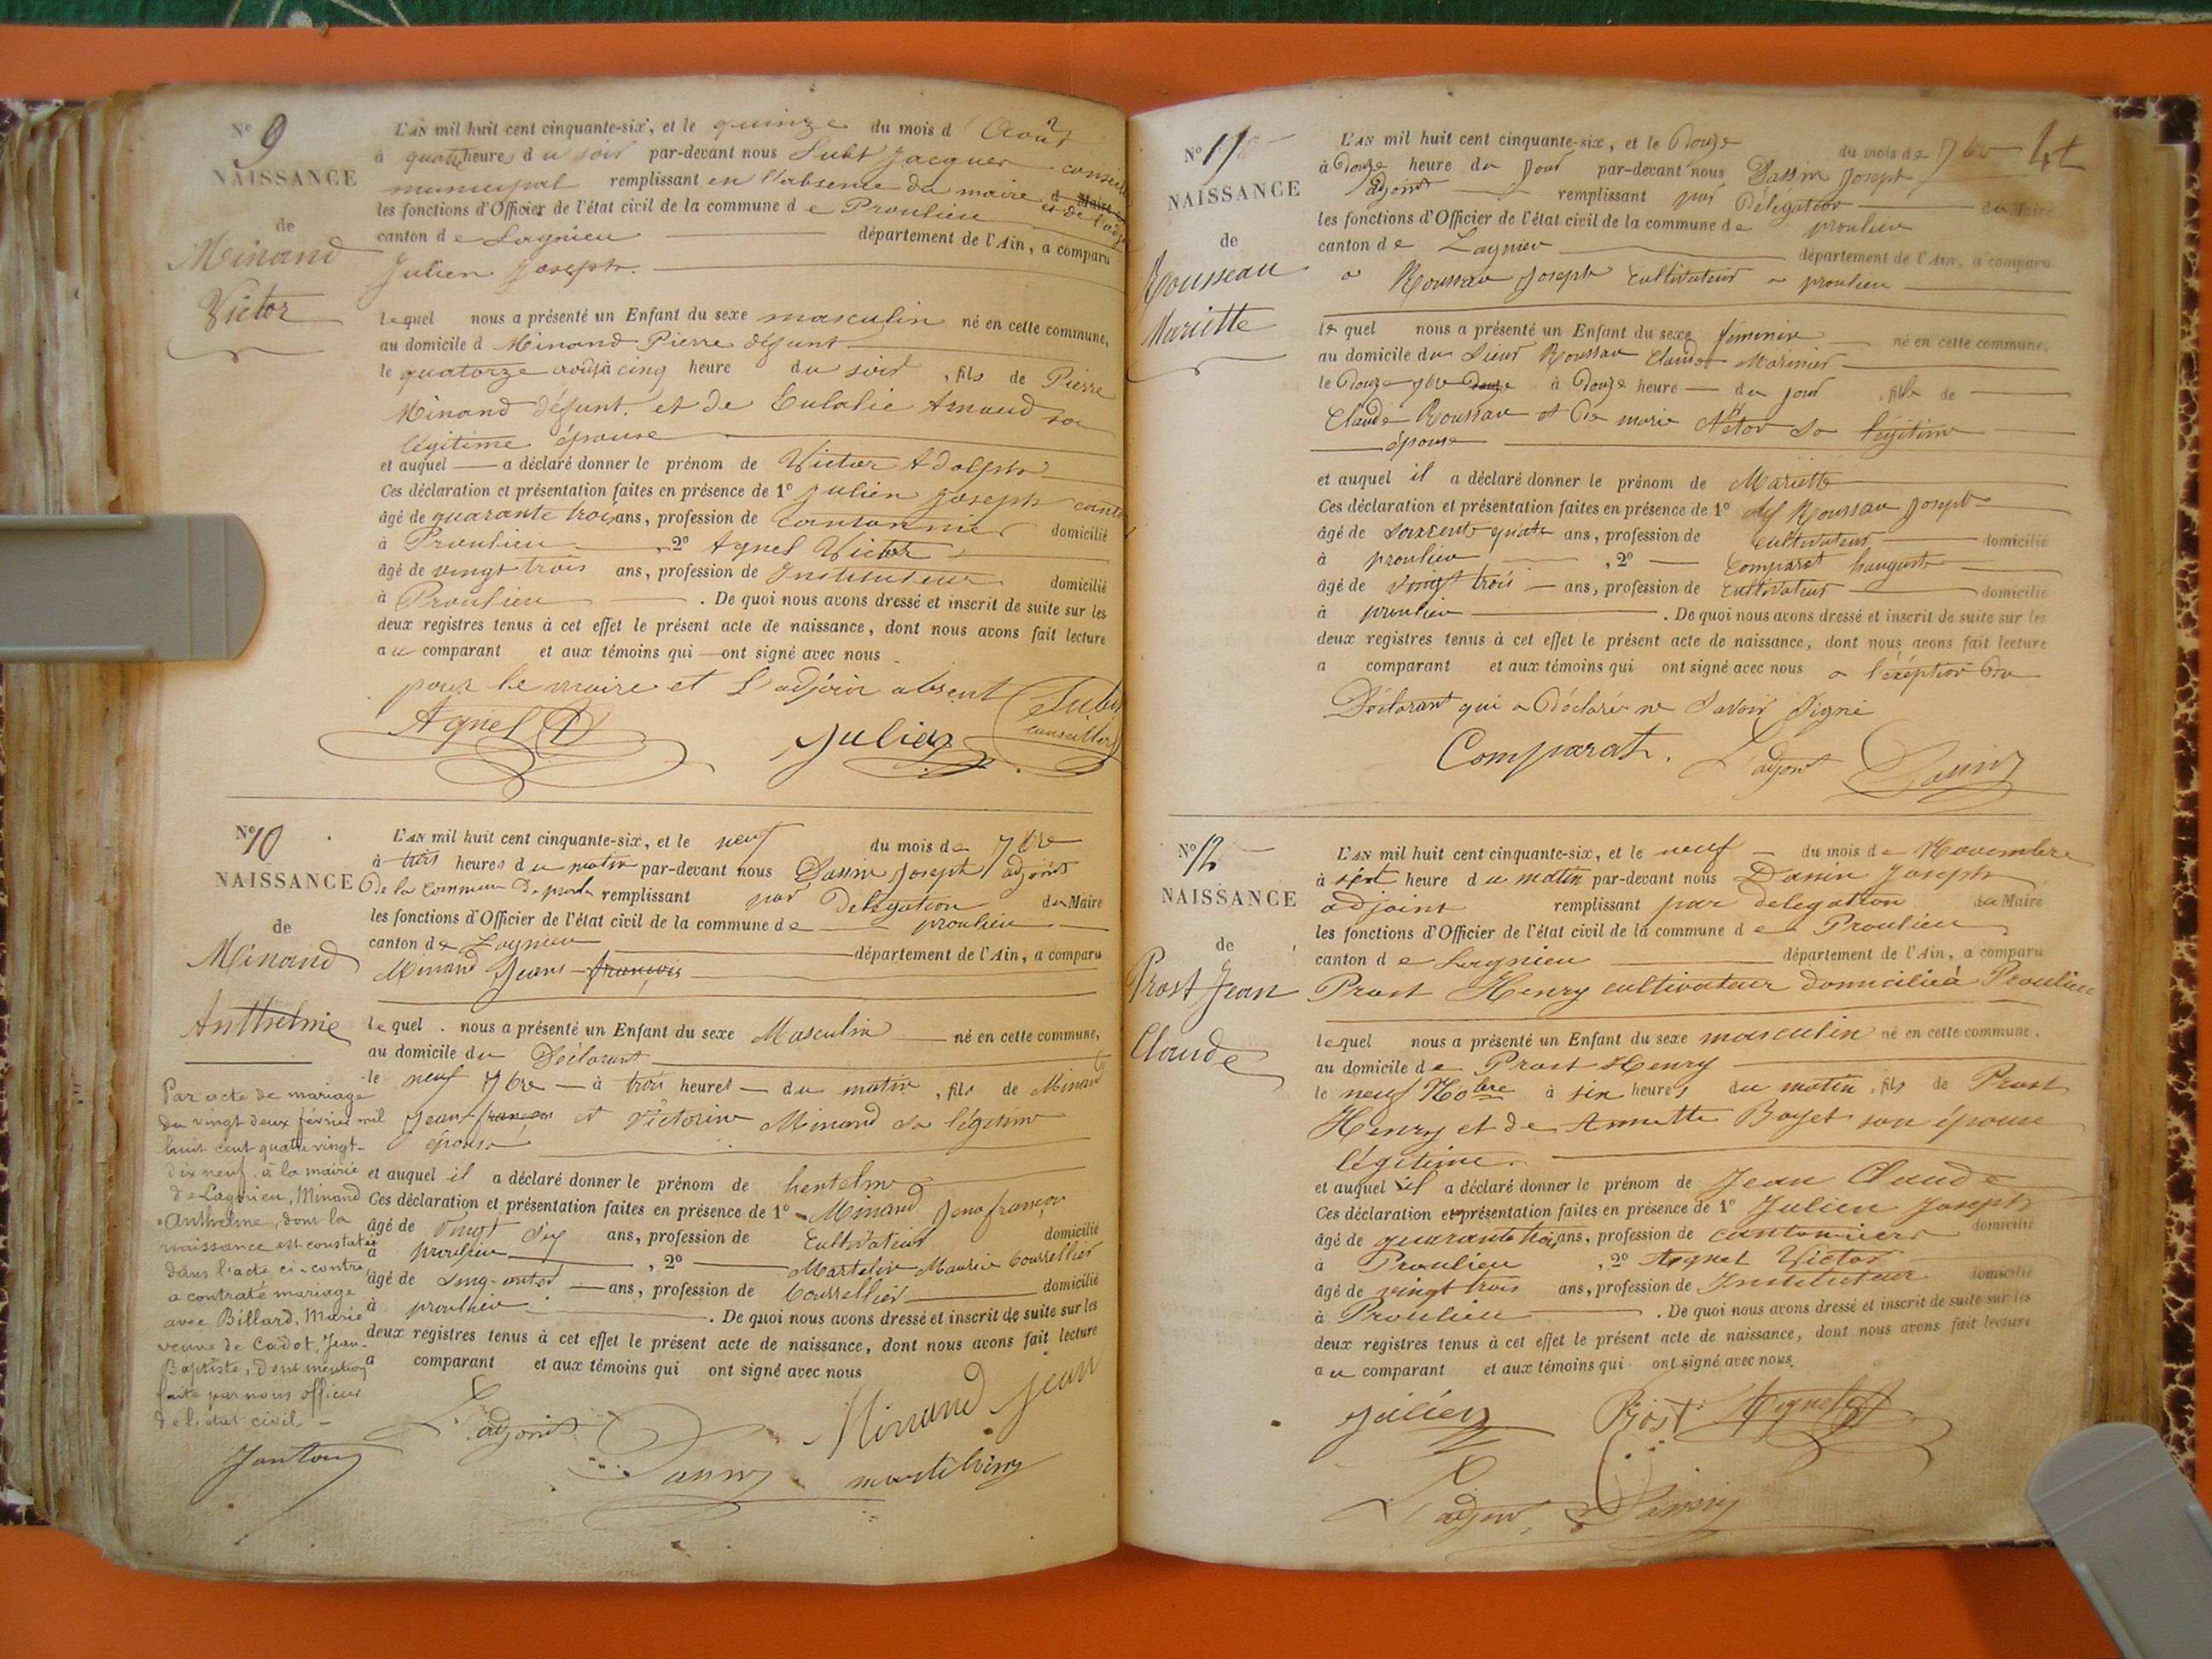 N° 9
NAISSANCE
de
Minand
Victor
L'AN mil huit cent cinquante-six, et le quinze du mois d Août
à quatre heures du soir par-devant nous Subt Jacques conseil
municipal remplissant en l'absence du maire et de l'adj
les fonctions d'Officier de l'état civil de la commune de Proulieu
canton de Lagnieu département de l'Ain, a comparu
Julien Joseph.
lequel nous a présenté un Enfant du sexe masculin né en cette commune,
au domicile d Minand Pierre défunt
le quatorze août à cinq heure du soir, fils de Pierre
Minand défunt. et de Eulalie Arnaud sa
légitime épouse
et auquel a déclaré donner le prénom de Victor Adolphe
Ces déclaration et présentation faites en présence de 1° Julien Joseph
âgé de quarante trois ans, profession de cantonnier domicilié
à Proulieu, 2° Agnel Victor
âgé de vingt trois ans, profession de Instituteur domicilié
à Proulieu. De quoi nous avons dressé et inscrit de suite sur les
deux registres tenus à cet effet le présent acte de naissance, dont nous avons fait lecture
au comparant et aux témoins qui ont signé avec nous
pour le maire et l'adjoin absent
Agnel Julien conseiller
N° 10
NAISSANCE
de
Minand
Anthelmie
L'AN mil huit cent cinquante-six, et le neuf du mois de 7bre
à trois heures du matin par-devant nous Dassin Joseph adjoint
De la commune De remplissant par Delegation du Maire
les fonctions d'Officier de l'état civil de la commune de proulieu
canton de Lagnieu département de l'Ain, a comparu
Minand Jean françois
lequel nous a présenté un Enfant du sexe Masculin né en cette commune,
au domicile du Déclarant
le neuf 7bre à trois heures du matin, fils de Minand
Jean françois et Victorine Minand sa légitime
épouse
et auquel il a déclaré donner le prénom de hentelme
Ces déclaration et présentation faites en présence de 1° Minand Jean françois
âgé de Vingt ans, profession de Cultivateur domicilié
à proulieu, 2° Martelin Maurice bourrellier
âgé de ans, profession de bourrellier domicilié
à proulieu. De quoi nous avons dressé et inscrit de suite sur les
deux registres tenus à cet effet le présent acte de naissance, dont nous avons fait lecture
a comparant et aux témoins qui ont signé avec nous
L'adjoint Minand Jean
Par acte de mariage
du vingt deux février mil
huit cent quatre vingt-
dix neuf, à la mairie
de Lagnieu, Minand
Anthelme, dont la
naissance est constatée
dans l'acte ci-contre
a contracté mariage
avec Billard, Marie
veuve de Cadot, Jean-
Baptiste, dont mention
faite par nous officier
de l'état civil
N° 11
NAISSANCE
de
Rousseau
Mariette
L'AN mil huit cent cinquante-six, et le Douze du mois de 7bre
à Douze heure du jour par-devant nous Dassin Joseph
adjoint remplissant par Délégation du Maire
les fonctions d'Officier de l'état civil de la commune de proulieu
canton de Lagnieu département de l'Ain, a comparu
Roussau Joseph Cultivateur a proulieu
lequel nous a présenté un Enfant du sexe féminin né en cette commune,
au domicile du Sieur Roussau Claude Marinier
le Douze 7bre à Douze heure du jour, fille de
Claude Roussau et De marie sa légitime
épouse
et auquel il a déclaré donner le prénom de Mariette
Ces déclaration et présentation faites en présence de 1° Roussau Joseph
âgé de soixente quatre ans, profession de cultivateur domicilié
à proulieu, 2° Comparat haugust
âgé de Vingt trois ans, profession de Cultivateur domicilié
à proulieu. De quoi nous avons dressé et inscrit de suite sur les
deux registres tenus à cet effet le présent acte de naissance, dont nous avons fait lecture
a comparant et aux témoins qui ont signé avec nous a l'exéption Du
Déclarant qui a Déclaré ne Savoir Signé
Comparat. L'adjoint Dassin
N° 12
NAISSANCE
de
Prost Jean
Claude
L'AN mil huit cent cinquante-six, et le neuf du mois de Novembre
à sept heure du matin par-devant nous Dassin Joseph
adjoint remplissant par delegation du Maire
les fonctions d'Officier de l'état civil de la commune de Proulieu
canton de Lagnieu département de l'Ain, a comparu
Prost Henry cultivateur domicilié à Proulieu
lequel nous a présenté un Enfant du sexe masculin né en cette commune,
au domicile de Prost Henry
le neuf Nobre à six heures du matin, fils de Prost
Henry et de Annette Boyet son épouse
légitime.
et auquel il a déclaré donner le prénom de Jean Claude
Ces déclaration et présentation faites en présence de 1° Julien Joseph
âgé de quarante trois ans, profession de cantonnier domicilié
à Proulieu, 2° Agnel Victor
âgé de vingt trois ans, profession de Instituteur domicilié
à Proulieu. De quoi nous avons dressé et inscrit de suite sur les
deux registres tenus à cet effet le présent acte de naissance, dont nous avons fait lecture
au comparant et aux témoins qui ont signé avec nous.
Julien Prost Agnel